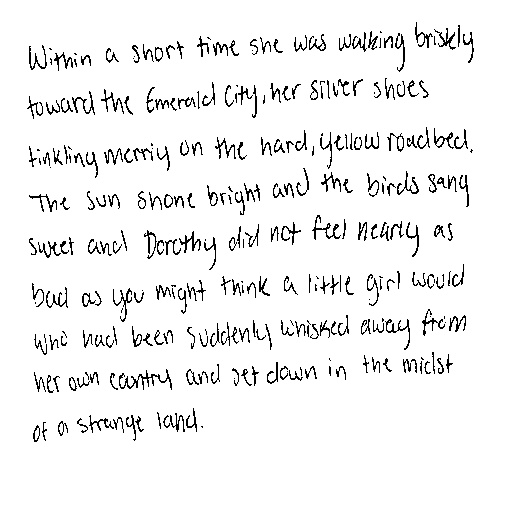 Within a short time she was walking briskly
toward the Emerald City, her silver shoes
tinkling merriy on the hard, yellow roadbed.
The sun shone bright and the birds sang
sweet and Dorothy did not feel nearly as
bad as you might think a little girl would
who had been suddenly whisked away from
her own cantry and set down in the midst
of a strange land.